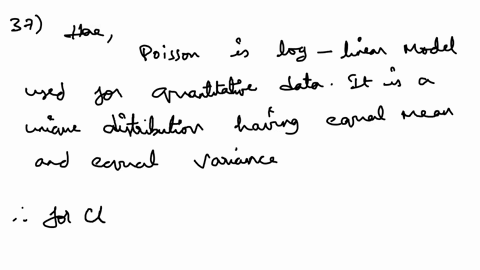 37) Here,
Poisson is log-linear Model
used for quantitative data. It is a
unique distribution having equal mean
and equal variance
∴ for Cl